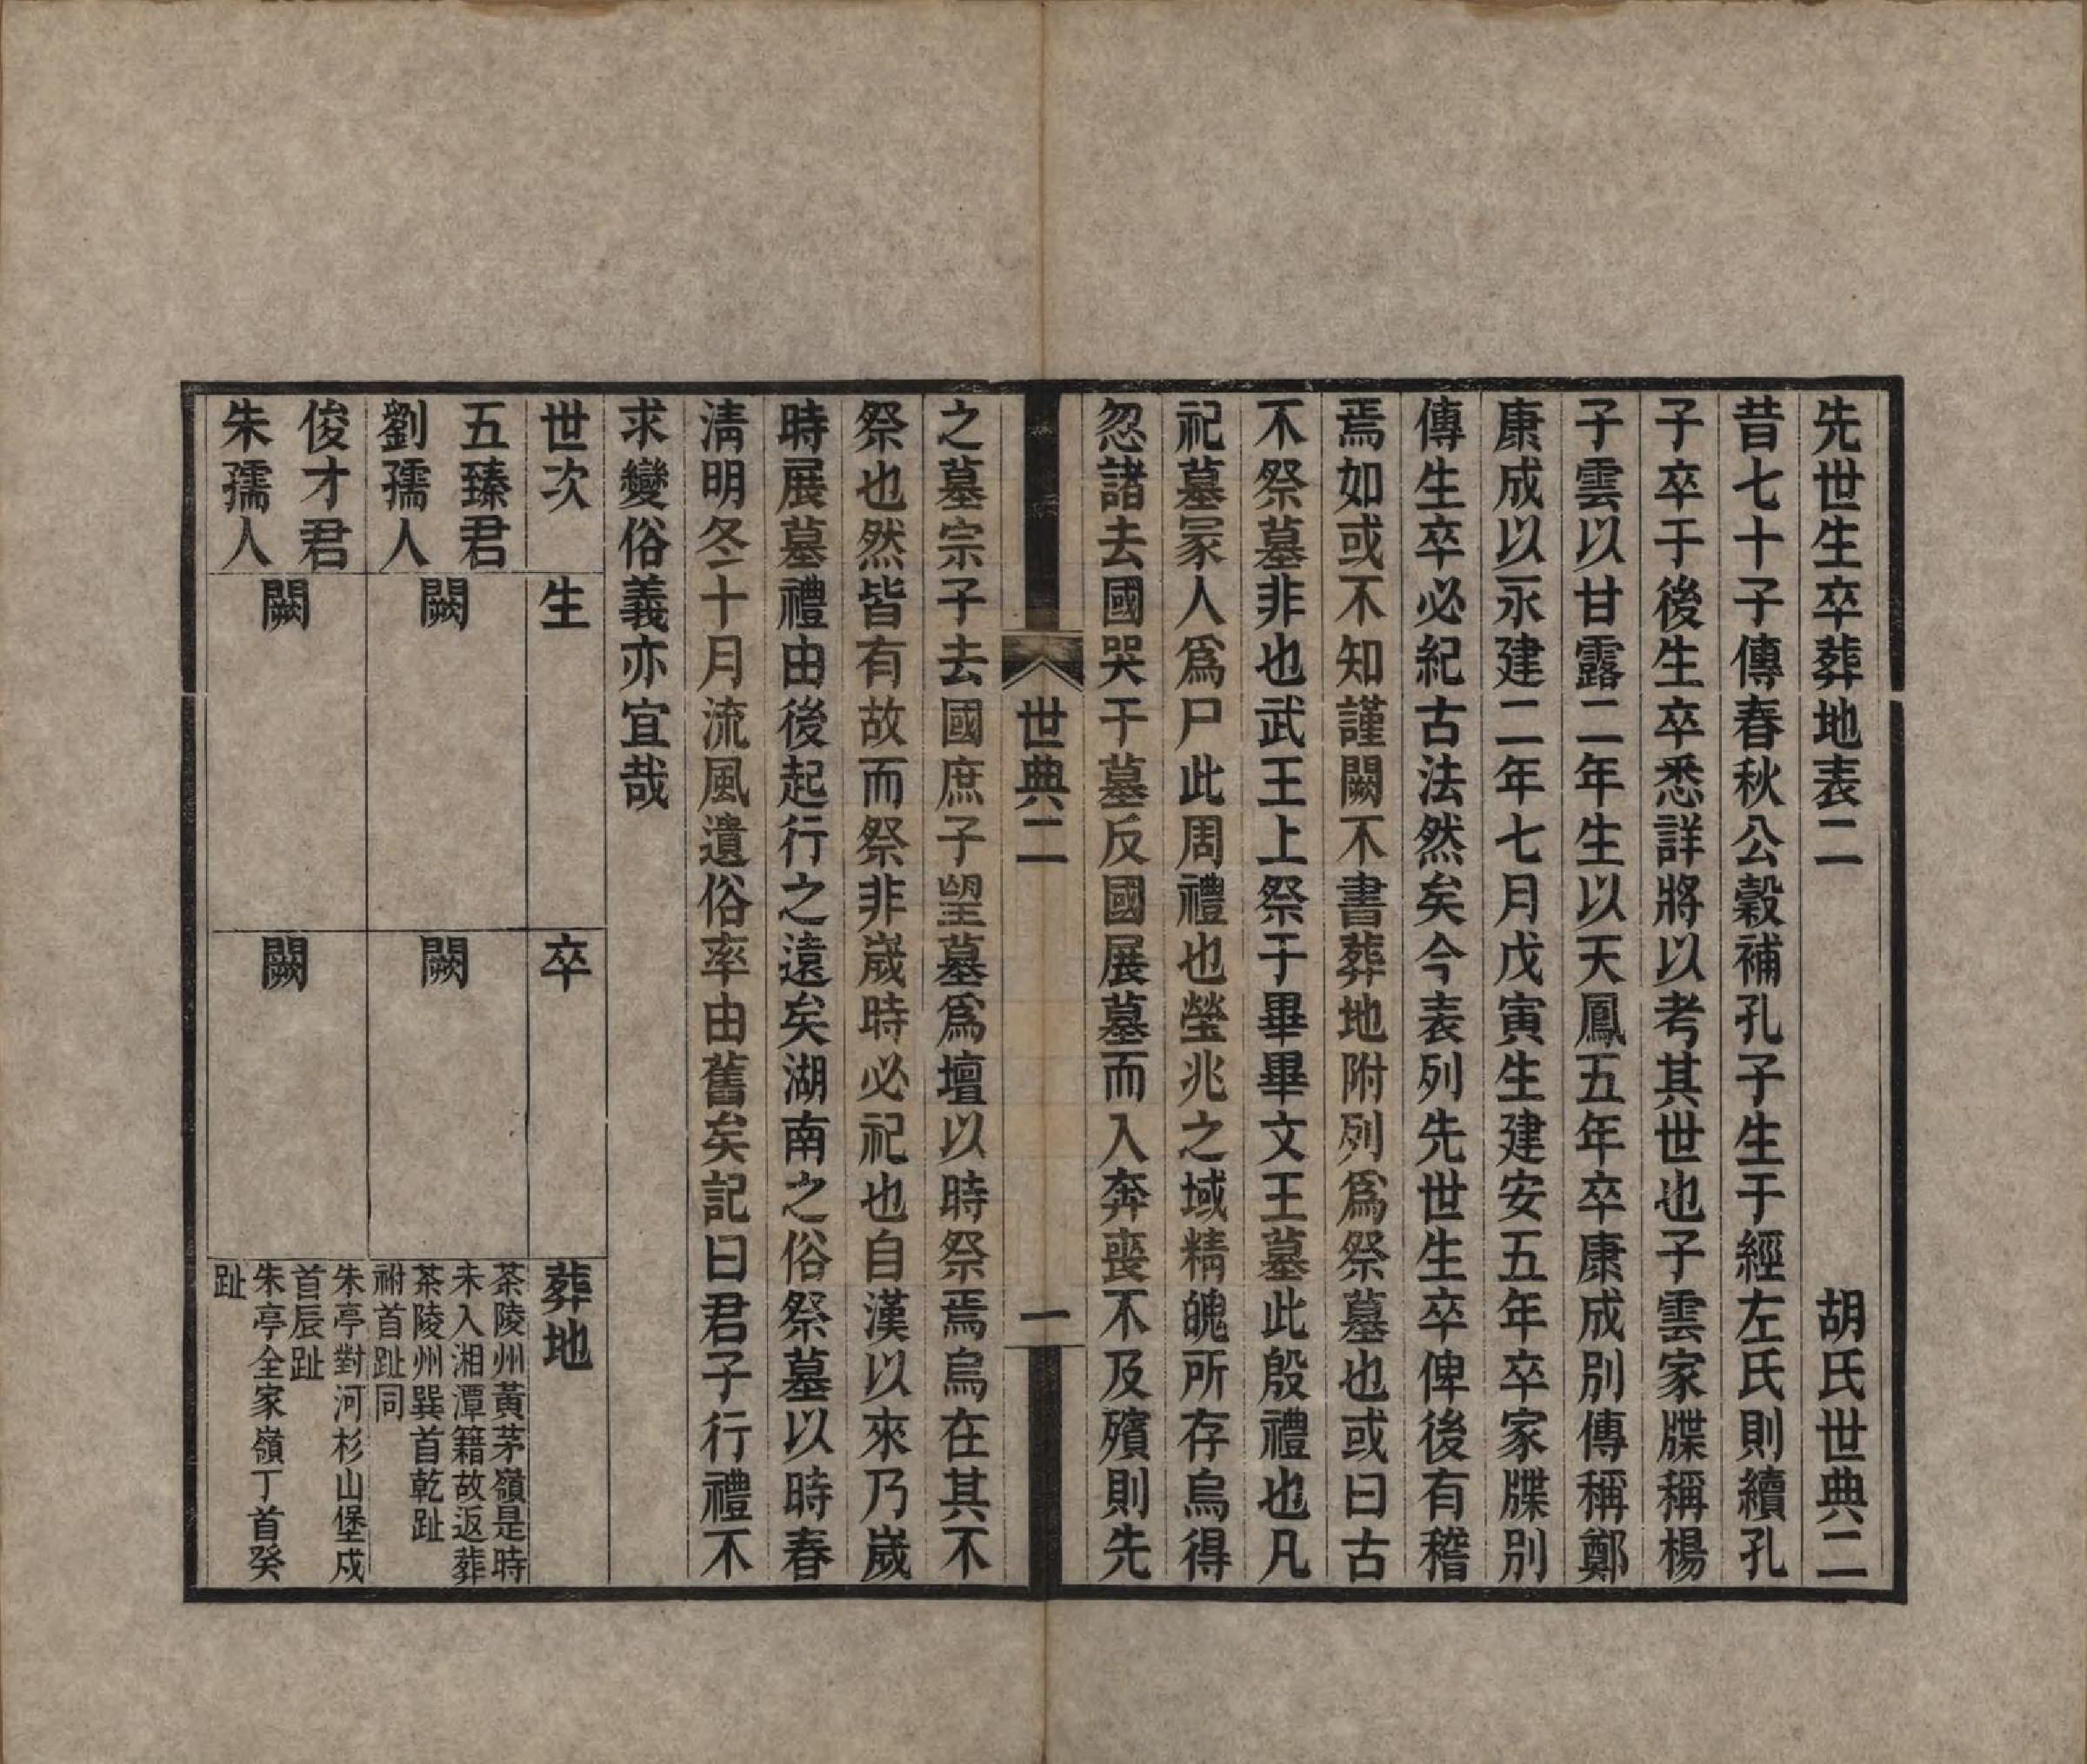 先世生卒葬地表二　胡氏世典二
昔七十子傳春秋公穀補孔子生于經左氏則續孔
子卒于後生卒悉詳將以考其世也子雲家牒稱楊
子雲以甘露二年生以天鳳五年卒康成別傳稱鄭
康成以永建二年七月戊寅生建安五年卒家牒別
傳生卒必紀古法然矣今表列先世生卒俾後有稽
焉如或不知謹闕不書葬地附列爲祭墓也或曰古
不祭墓非也武王上祭于畢畢文王墓此殷禮也凡
祀墓冢人爲尸此周禮也塋兆之域精魄所存烏得
忽諸去國哭于墓反國展墓而入奔喪不及殯則先
世典二　一
之墓宗子去國庶子望墓爲壇以時祭焉烏在其不
祭也然皆有故而祭非歲時必祀也自漢以來乃歲
時展墓禮由後起行之遠矣湖南之俗祭墓以時春
清明冬十月流風遺俗率由舊矣記曰君子行禮不
求變俗義亦宜哉
世次　生　卒　葬地
五臻君
劉孺人
闕
闕
茶陵州黃茅嶺是時
未入湘潭籍故返葬
茶陵州巽首乾趾
祔首趾同
俊才君
朱孺人
闕
闕
朱亭對河杉山堡戍
首辰趾
朱亭全家嶺丁首癸
趾